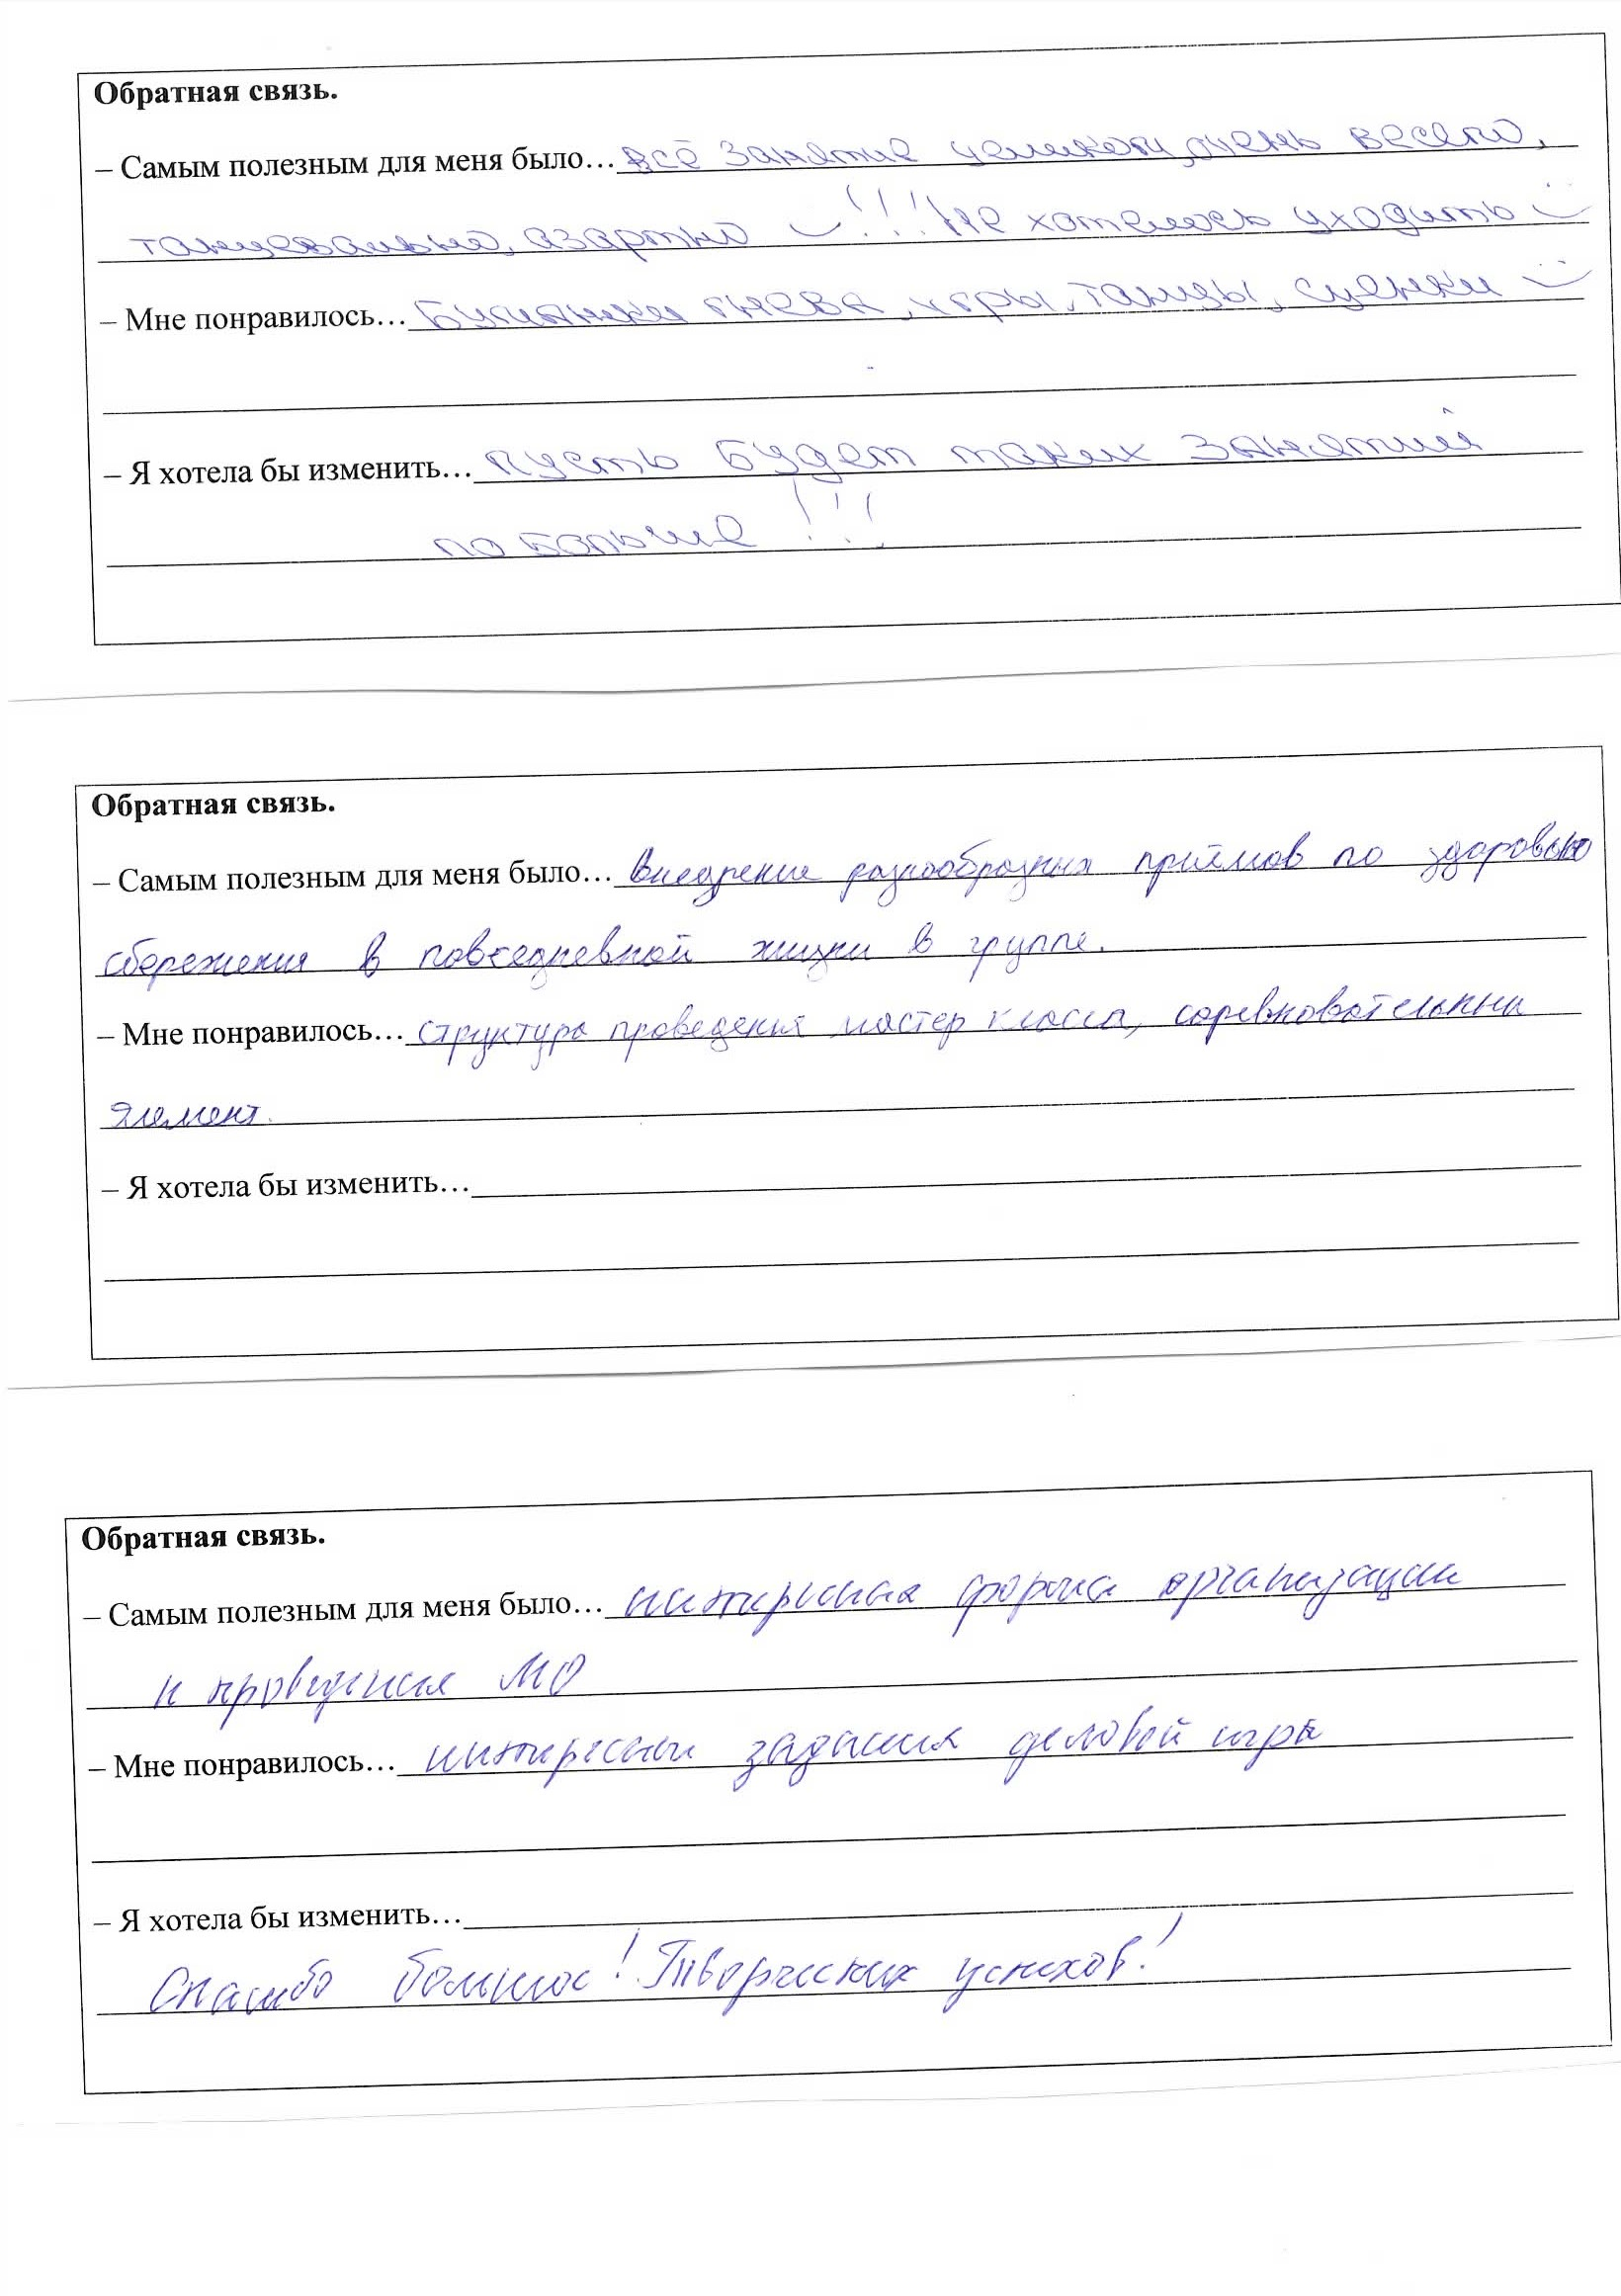 Обратная связь.
– Самым полезным для меня было… всё занятие целиком, очень весело,
танцевально, азартно !!! Не хотелось уходить
– Мне понравилось… гнева, игры, танцы, сценки
– Я хотела бы изменить… пусть будет таких занятий
по больше !!!
Обратная связь.
– Самым полезным для меня было… внедрение разнообразных приёмов по здоровью
сбережения в повседневной жизни в группе.
– Мне понравилось… структура проведения мастер класса, соревновательный
элемент.
– Я хотела бы изменить…
Обратная связь.
– Самым полезным для меня было… интересная форма организации
и проведения МО
– Мне понравилось… интересные задания деловой игры
– Я хотела бы изменить…
Спасибо большое! Творческих успехов!